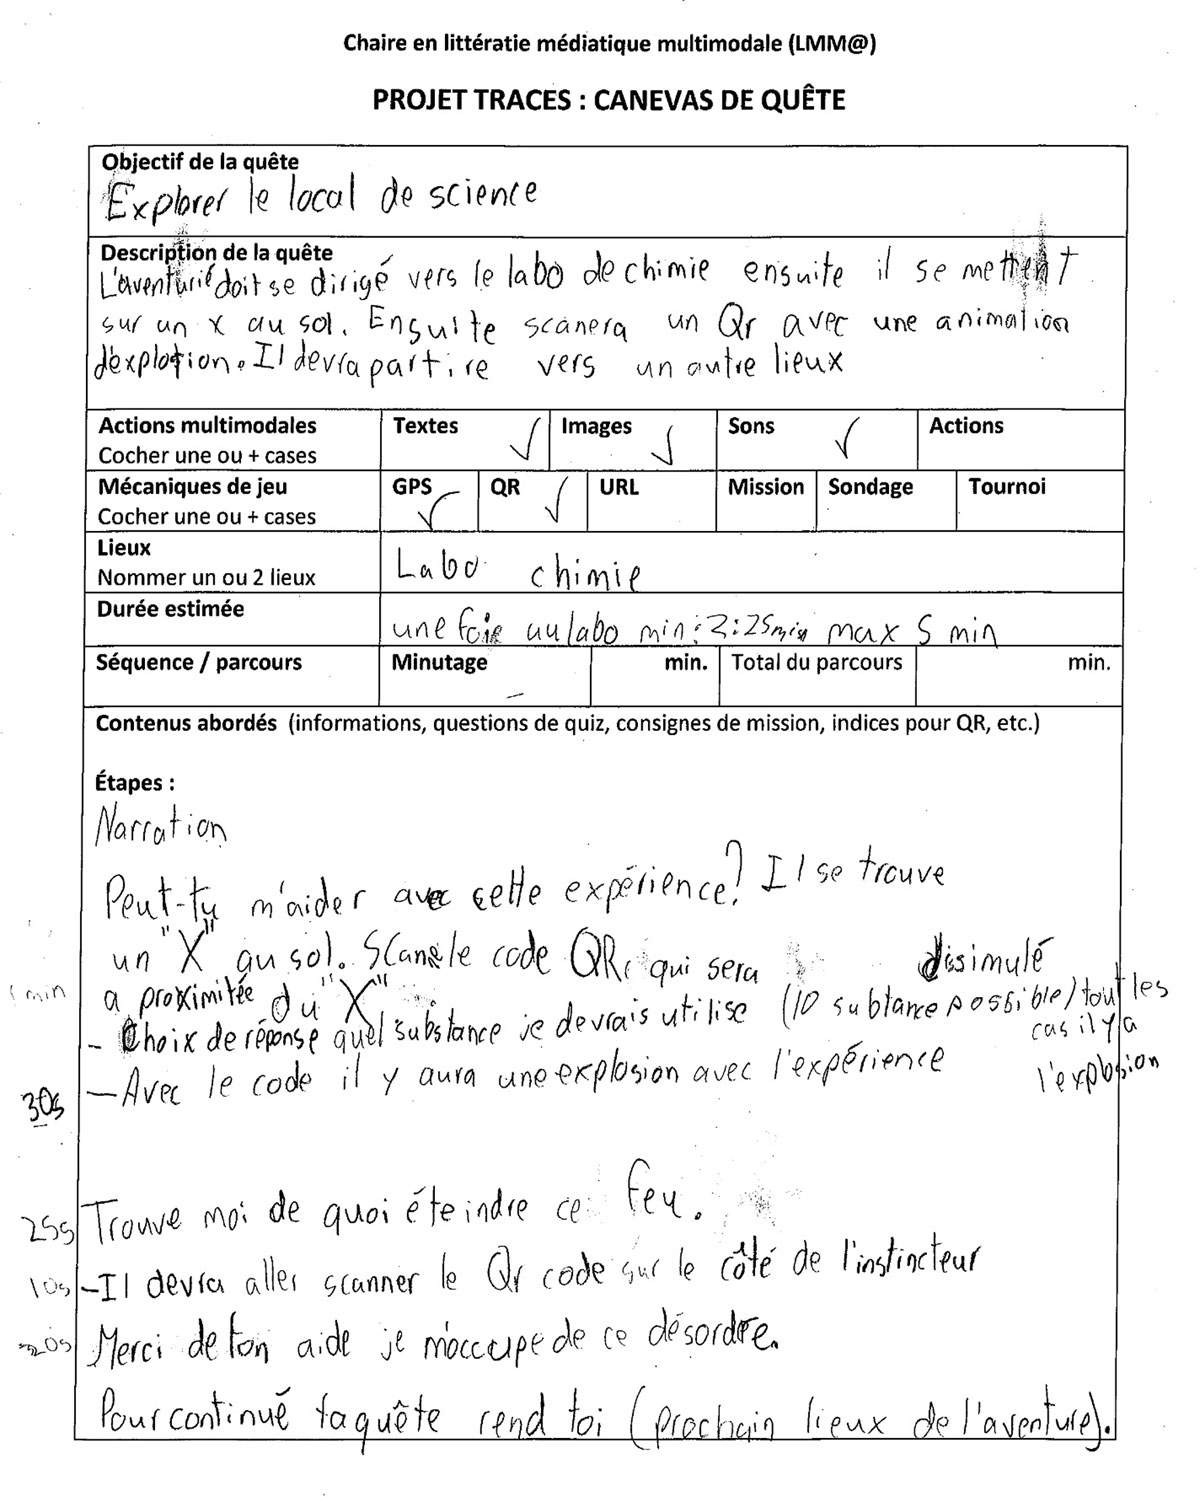 Chaire en littératie médiatique multimodale (LMM@)
PROJET TRACES : CANEVAS DE QUÊTE
Objectif de la quête
Explorer le local de science
Description de la quête
L'aventurié doit se dirigé vers le labo de chimie ensuite il se mettent
sur un x au sol. Ensuite scanera un Qr avec une animation
d'explotion. Il devra partire vers un autre lieux
Actions multimodales Textes ✓ Images ✓ Sons ✓ Actions
Cocher une ou + cases
Mécaniques de jeu GPS ✓ QR ✓ URL Mission Sondage Tournoi
Cocher une ou + cases
Lieux
Nommer un ou 2 lieux Labo chimie
Durée estimée
une foie au labo min : 2:25 min max 5 min
Séquence / parcours Minutage – min. Total du parcours min.
Contenus abordés (informations, questions de quiz, consignes de mission, indices pour QR, etc.)
Étapes :
Narration
Peut-tu m'aider avec cette expérience? Il se trouve
un "X" au sol. Scane le code QR, qui sera dissimulé
1 min a proximitée du "X"
- Choix de réponse quel substance je devrais utilise (10 subtance possible) tout les
cas il y a
l'explosion
30s - Avec le code il y aura une explosion avec l'expérience
25s Trouve moi de quoi éteindre ce feu.
10s - Il devra aller scanner le Qr code sur le côté de l'instincteur
20s Merci de ton aide je m'occupe de ce désordre.
Pour continué ta quête rend toi (prochain lieux de l'aventure).